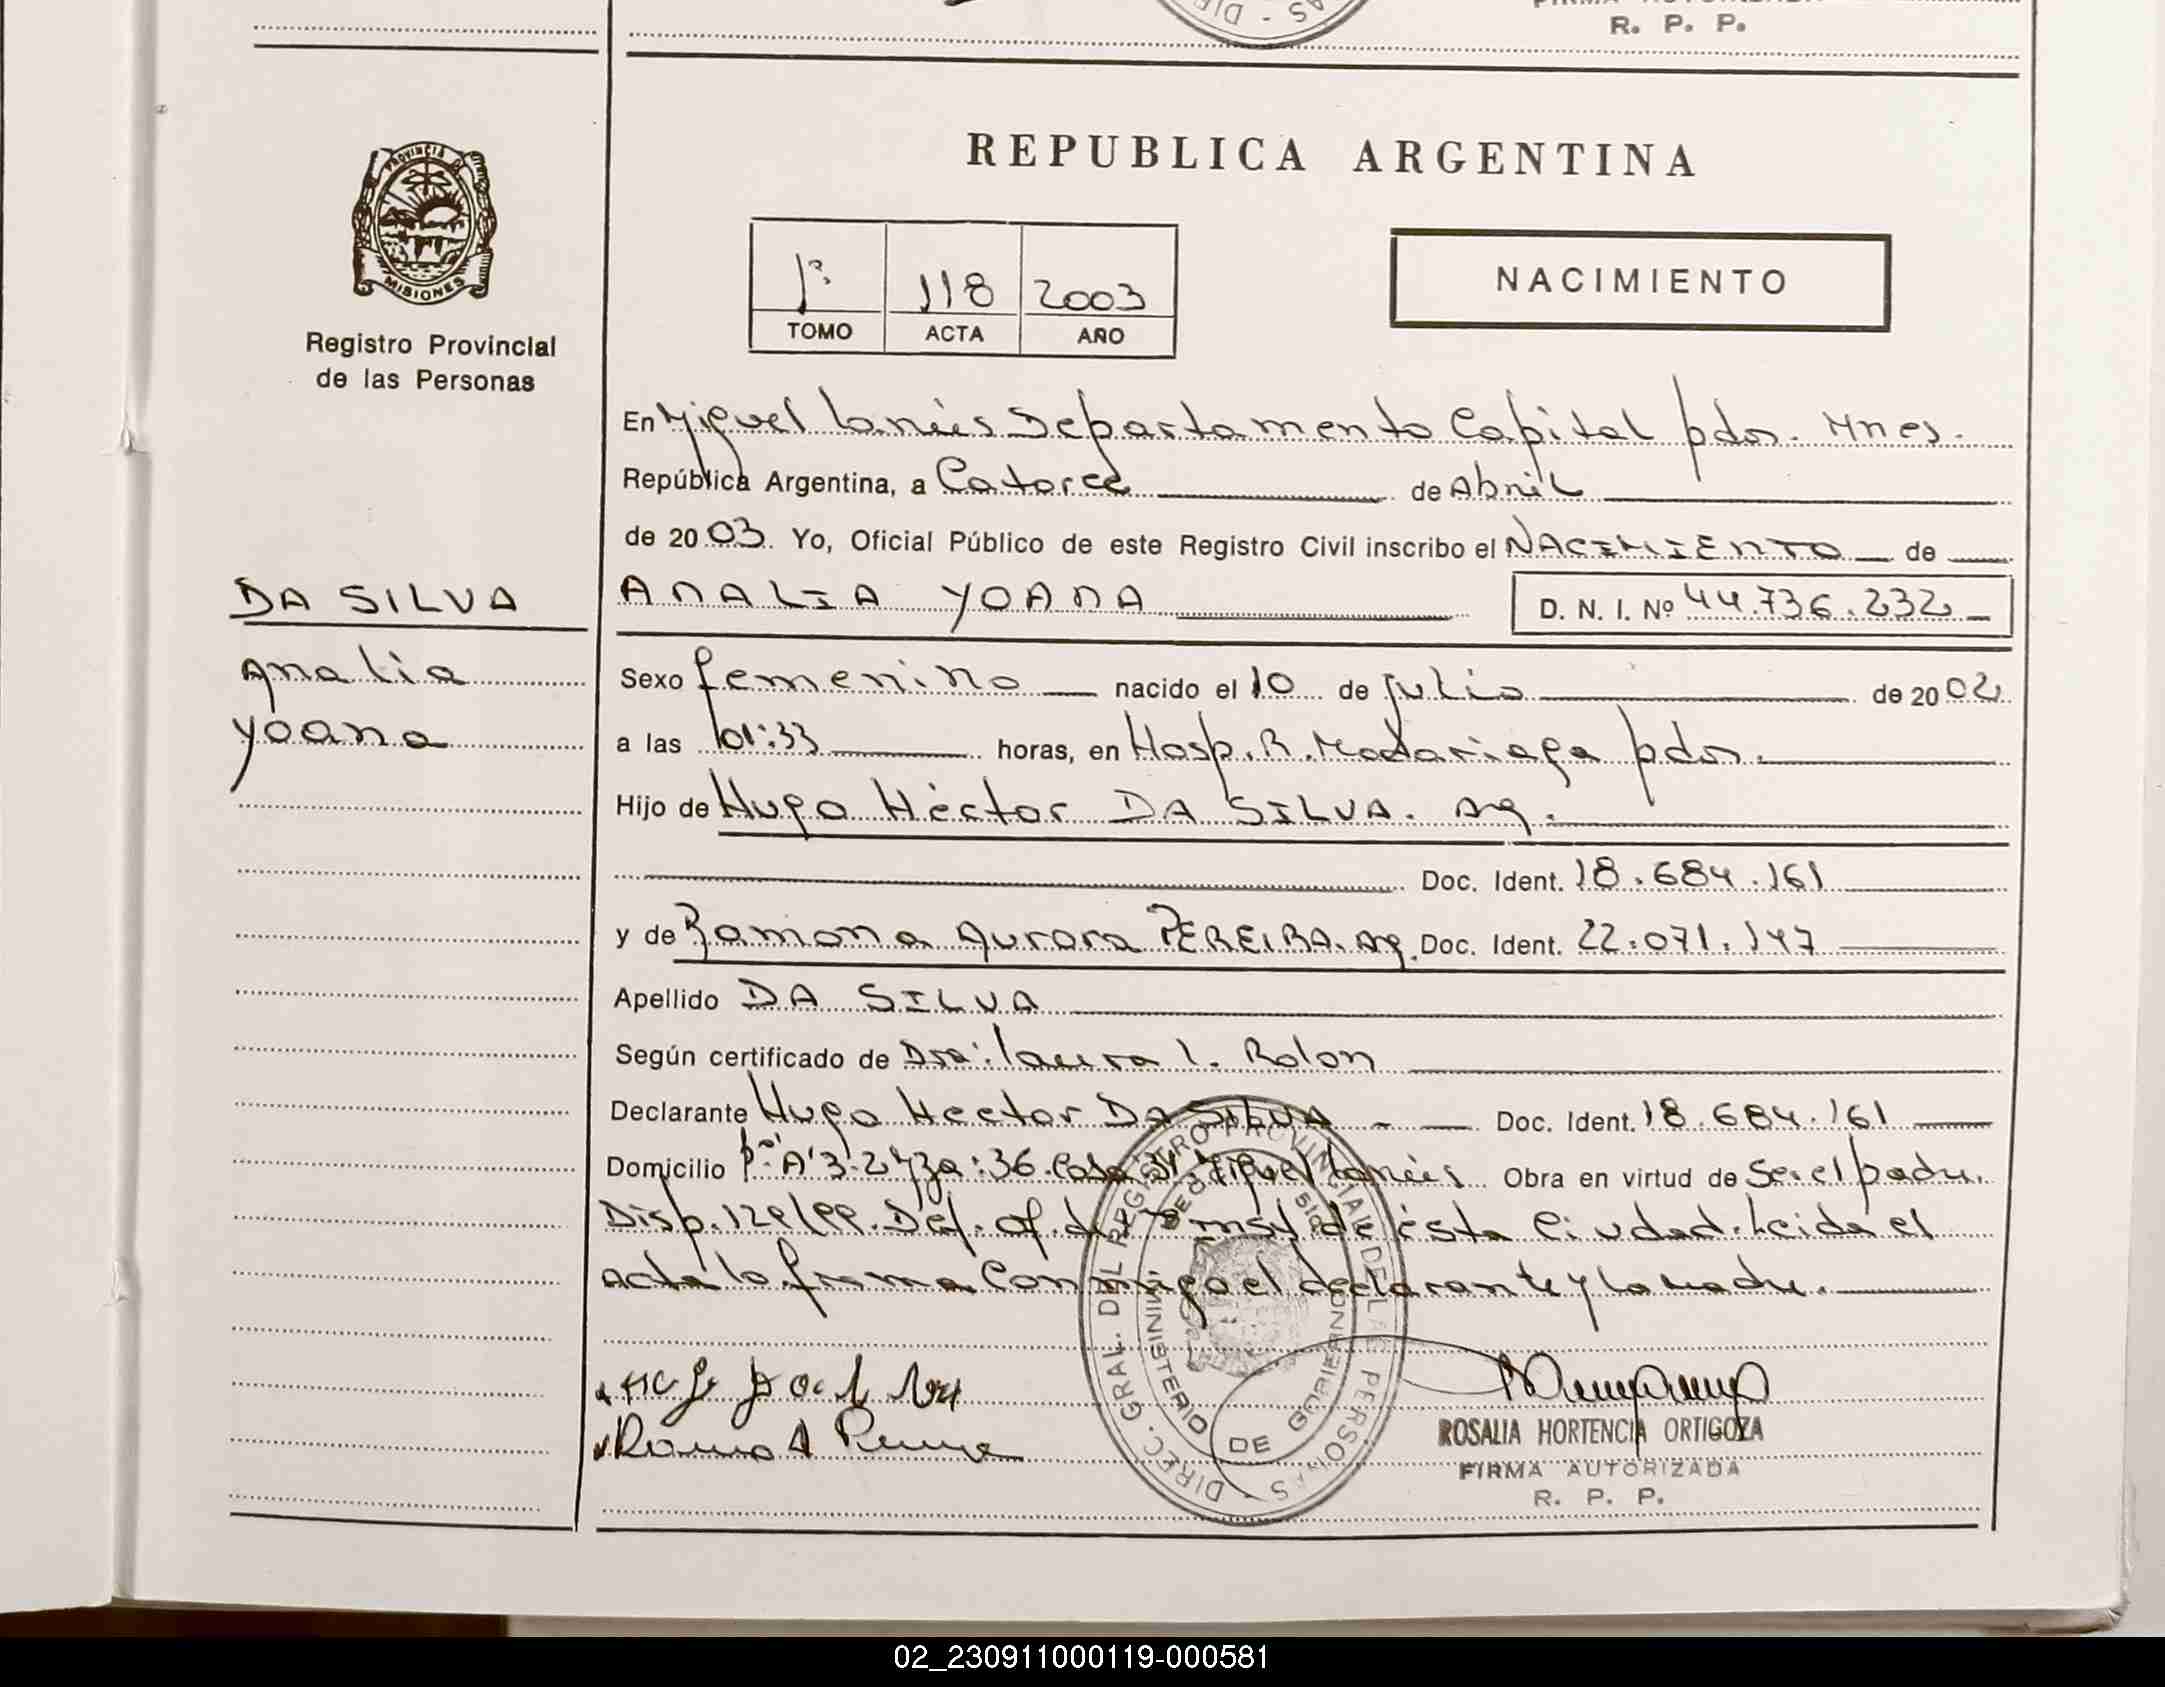 R. P. P.
PROVINCIA DE
MISIONES
Registro Provincial
de las Personas
REPUBLICA ARGENTINA
1º 118 2003
TOMO ACTA AÑO
NACIMIENTO
En Miguel Lanús Departamento Capital pdas. Mnes.
República Argentina, a Catorce de Abril
de 2003. Yo, Oficial Público de este Registro Civil inscribo el NACIMIENTO de
DA SILVA
Analia
Yoana
ANALIA YOANA D. N. I. Nº 44.736.232
Sexo femenino nacido el 10 de julio de 2002
a las 01:33 horas, en Hosp. R. Madariaga pdas.
Hijo de Hugo Héctor DA SILVA. Arg.
Doc. Ident. 18.684.161
y de Ramona Aurora PEREIRA. Arg. Doc. Ident. 22.071.147
Apellido DA SILVA
Según certificado de Dra: Laura L. Rolon
Declarante Hugo Hector DA SILVA Doc. Ident. 18.684.161
Domicilio 36. Casa 34 Miguel Lanús Obra en virtud de Ser el padre.
Disp. Def. of. de ésta Ciudad. Leida el
acta lo firma Conmigo el declarante y la madre.
DIREC. GRAL. DEL REGISTRO PROVINCIAL DE LAS PERSONAS
MINISTERIO DE GOBIERNO
ROSALIA HORTENCIA ORTIGOZA
FIRMA AUTORIZADA
R. P. P.
02_230911000119-000581